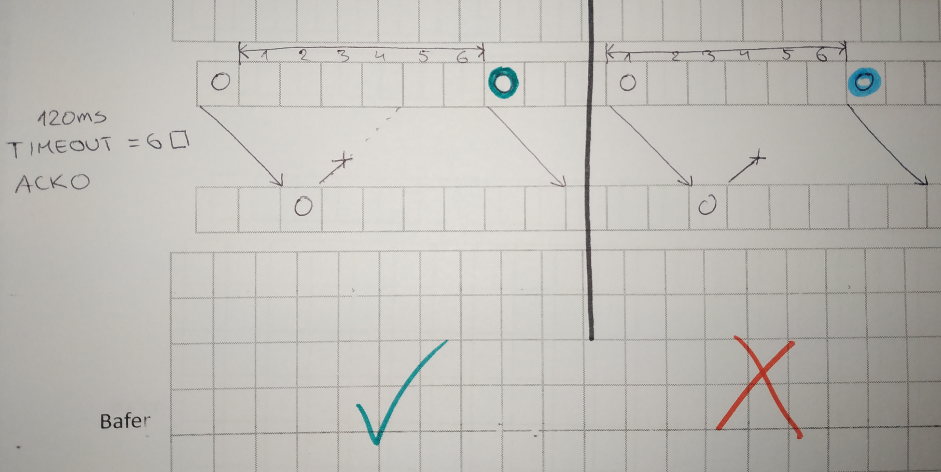 1 2 3 4 5 6 1 2 3 4 5 6
0 0 0 0
120ms
TIMEOUT = 6 □
ACK0
0 0
Bafer